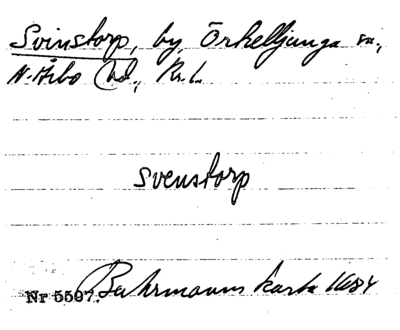 Svinstorp, by, Örkelljunga sn,
N. Åsbo hd., Kr. l.
svenstorp
Nr 5597. Buhrmanns karta 1684